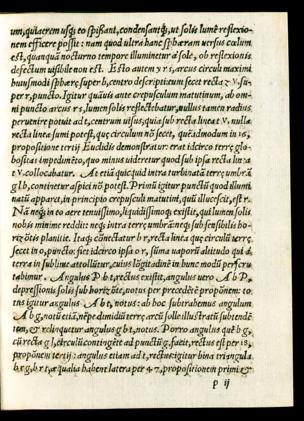 um, quiaerem usq; eo spissant, condensantq;, ut solis lumē reflexio-
nem efficere possit: nam quod ultra hanc sphæram versus cœlum
est, quanquā nocturno tempore illuminetur à sole, ob reflexionis
defectum uisibile non est. Esto autem y r s, arcus circuli maximi
huiusmodi sphæræ super b, centro descripticum secet recta z v. su-
per r, puncto. Igitur quāuis ante crepusculum matutinum, ab om-
ni puncto arcus r s, lumen solis reflectebatur, nullus tamen radius
peruenire potuit ad t, centrum uisus; quia sub recta linea t v. nulla
recta linea sumi potest, quę circulum nō secet, quēadmodum in 16,
propositione tertij Euclidis demonstratur: erat idcirco terrę glo-
bositas impedimēto, quo minus uideretur quod sub ipsa recta linea
t v. collocabatur. At etiā quicquid intra turbinatā terrę umbrā
g l b, continetur aspici nō potest. Primū igitur punctū quod illumi
natū apparet, in principio crepusculi matutini, quū illucescit, est r.
Nā neq; in eo aere tenuissimo, liquidissimoq; existit, qui lumen solis
nobis minime reddit: neq; intra terrę umbrā: neq; sub sensibilis ho-
rizōtis planitie. Itaq; cōnectatur b r, recta linea quę circulū terrę
secet in o, pūncto: fiet idcirco ipsa o r, summa uaporū altitudo quì à
terra in sublime attollūtur, cuius lōgitudinē in hunc modū perscru-
tabimur. Angulus P b t, rectus existit, angulus uero A b P,
depressionis solis sub horizōte, notus per precedētē propōnem: to-
tns igitur angulus A b t, notus: ab hoc subtrahemus angulum
A b g, notū etiā, nēpe dimidiū terrę arcū sole illustratū subtendē
tem, & relinquetur angulus g b t, notus. Porro angulus quē b g,
cū recta g l, circulū contingēte ad punctū g, facit, rectus est per 18,
propōnem tertij: angulus etiam ad t, rectus: igitur bina triangula
b r g, b r t, æqualia habent latera per 47, propositionem primi &
p ij